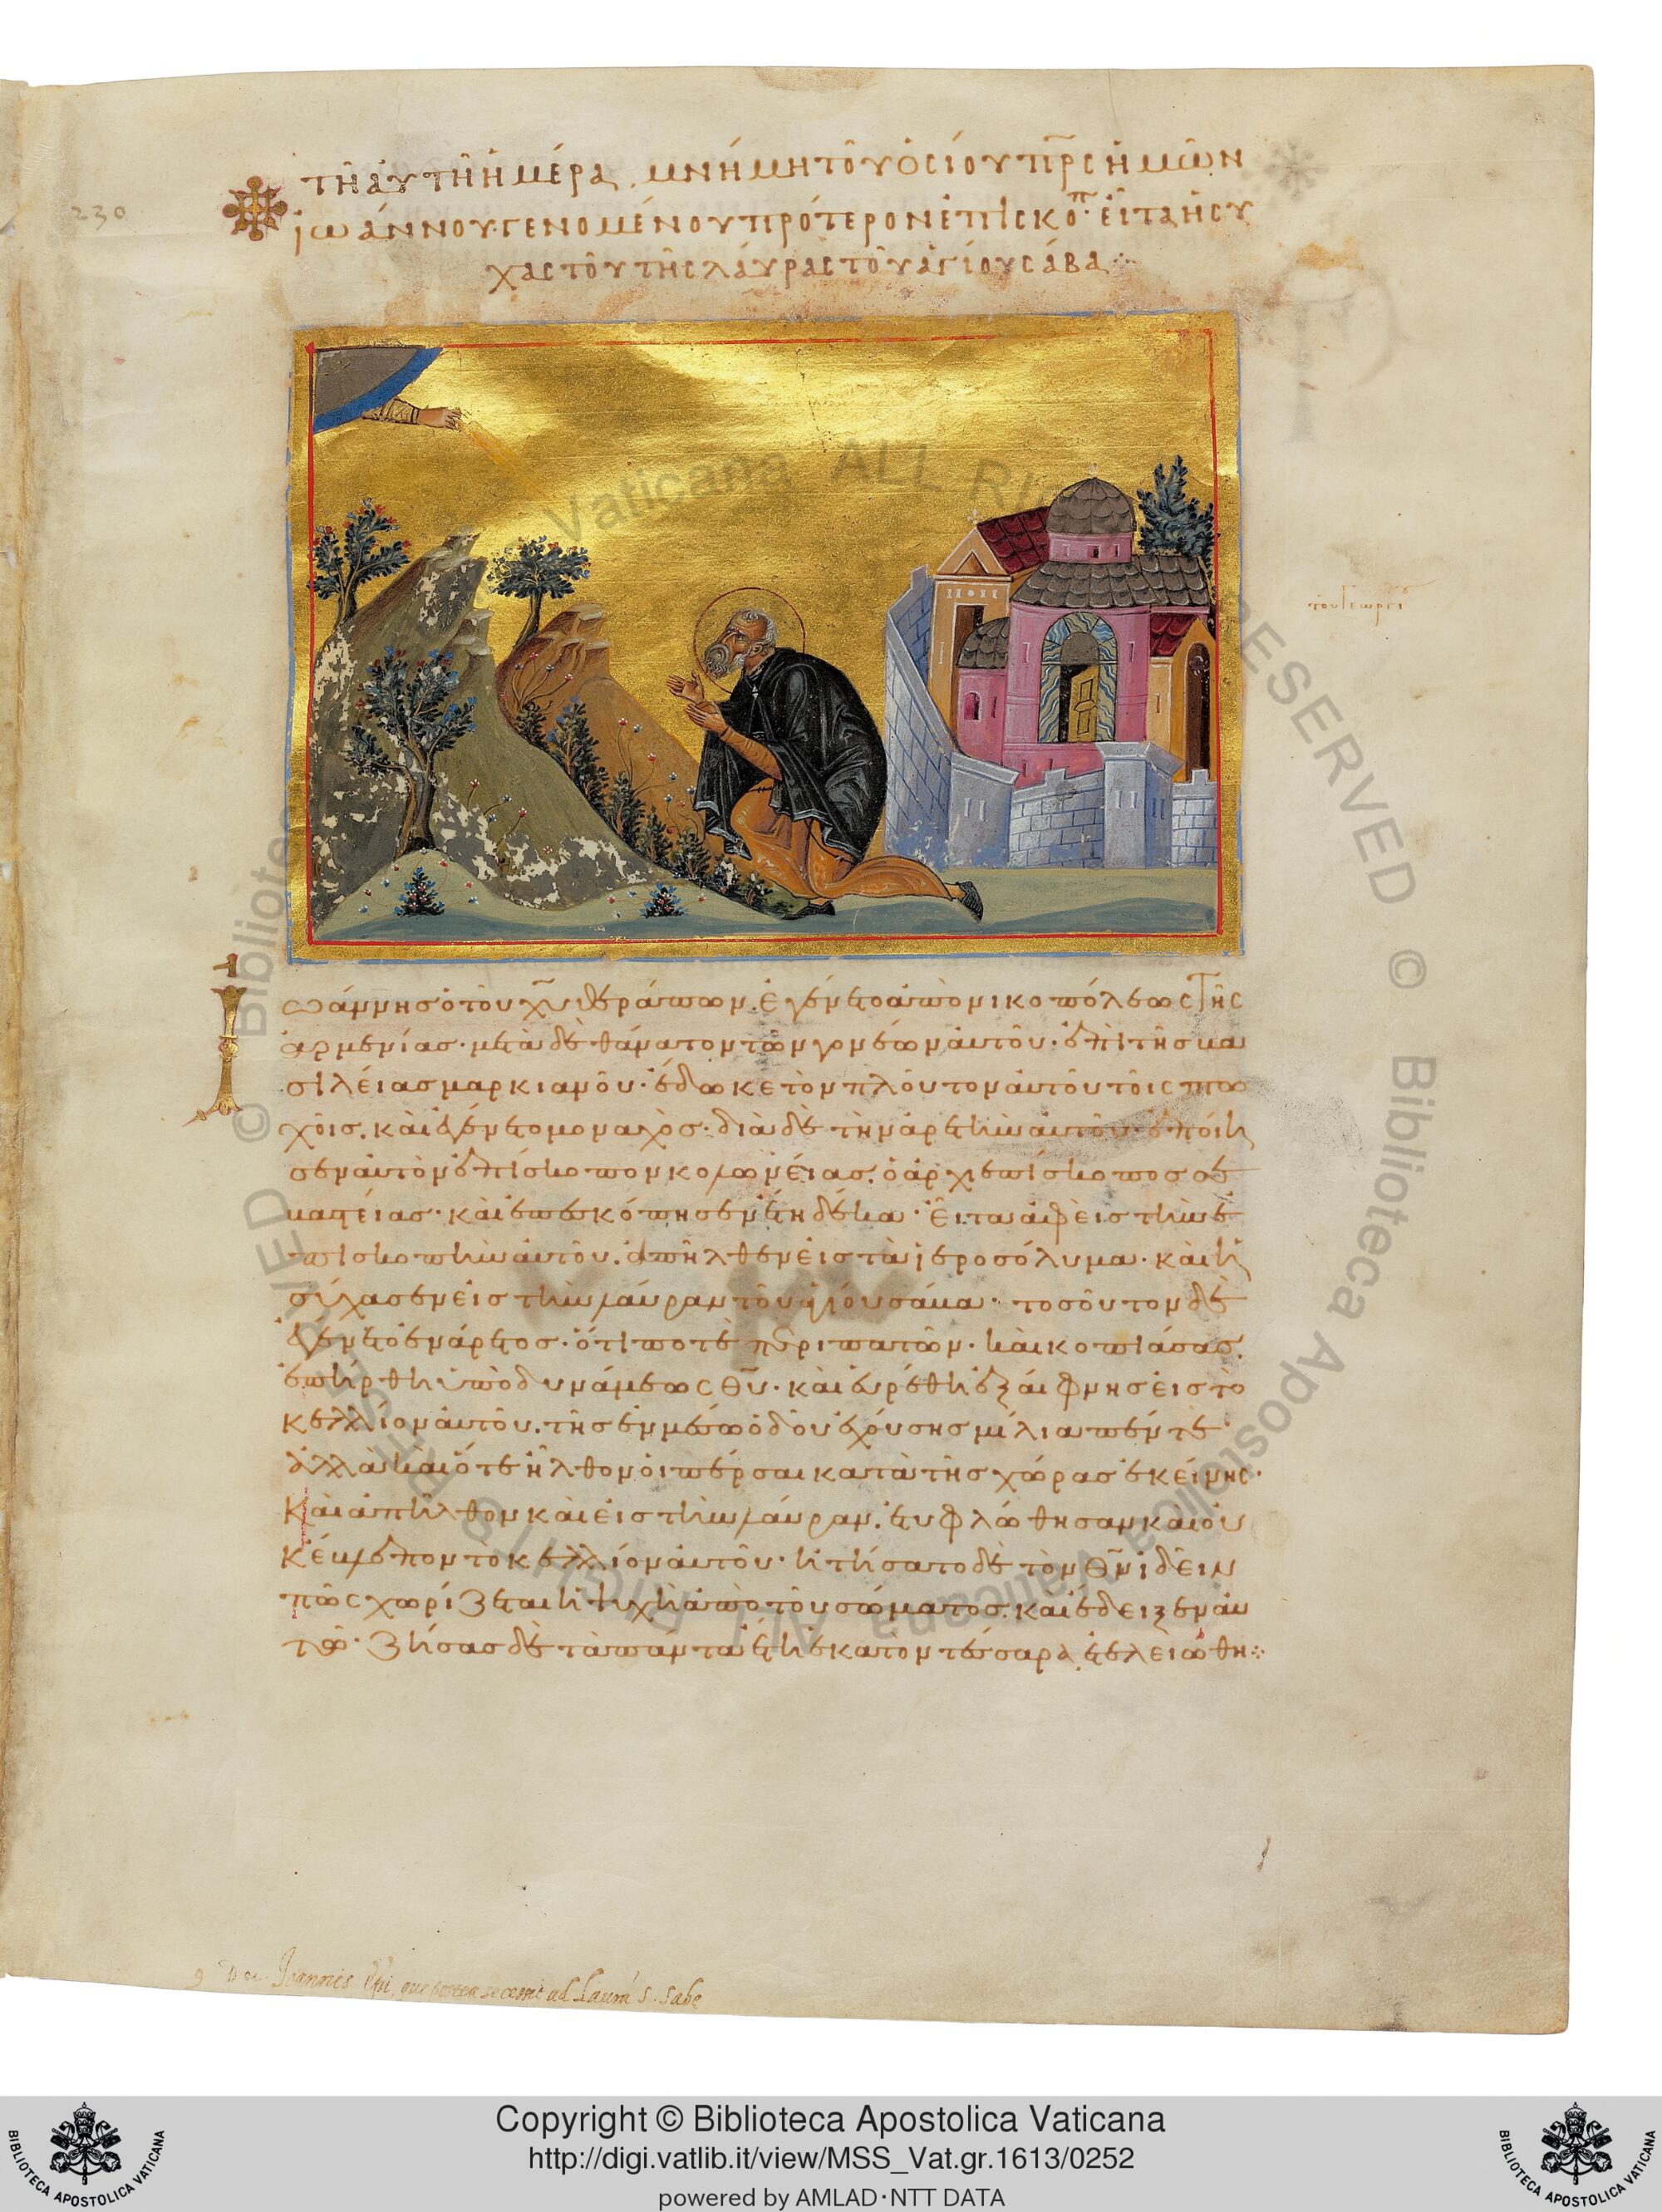 230
τῆ ἀυτῆ ἡμέρα. μνήμη τοῦ ὁσίου πρ̅ς ἡμῶν
ἰωάννου. γενομένου πρότερον ἐπισκόπ· εἶτα ἡσυ
χαστοῦ τῆς λάυρας τοῦ ἁγίου σάβα
τοῦ Γεωργί
Ιωάννης ὁ τοῦ χυ̅ θεράπων. ἐγένετο ἀπὸ νικοπόλεως τῆς
ἀρμενίας· μετὰ δὲ θάνατον τῶν γονέων ἀυτοῦ· ἐπὶ τῆς βα
σιλείας μαρκιανοῦ· ἔδωκε τὸν πλοῦτον ἀυτοῦ τοῖς πτω
χοῖς. καὶ ἐγένετο μοναχὸς· διὰ δὲ τὴν ἀρετὴν ἀυτοῦ· ἐποίη
σεν ἀυτὸν ἐπίσκοπον κολωνείας. ὁ ἀρχιεπίσκοπος σε
βαστείας· καὶ ἐπεσκόπησεν ἔτη δέκα· εἶτα ἀφεὶς τὴν ἐ
πισκοπὴν ἀυτοῦ. ἀπῆλθεν εἰς τὰ ἱεροσόλυμα· καὶ ἡ
σύχασεν εἰς τὴν λάυραν τοῦ ἁγίου σάβα· τοσοῦτον δὲ
ἐγένετο ἐνάρετος· ὅτι ποτὲ περιπατῶν· καὶ κοπιάσας.
ἐπήρθη ὑπὸ δυνάμεως θυ̅· καὶ ἑυρέθη ἐξάιφνης εἰς τὸ
κελλίον ἀυτοῦ. τῆς ἐν μέσω ὁδοῦ ἐχούσης μίλια πέντε·
ἀλλὰ καὶ ὅτε ἦλθον ὁι πέρσαι κατὰ τῆς χώρας ἐκείνης·
Καὶ ἀπῆλθον καὶ εἰς τὴν λάυραν. ἐτυφλώθησαν καὶ οὐ
κ ἔβλεπον τὸ κελλίον ἀυτοῦ· ἠτήσατο δὲ τὸν θν̅ ἰδεῖν
πῶς χωρίζεται ἡ ψυχὴ ἀπὸ τοῦ σώματος. καὶ ἔδειξεν ἀυ
τῶ· ζήσας δὲ τὰ πάντα ἔτη ἑκατὸν τέσσαρα ἐτελειώθη
Joannis Epi, qui postea secessit ad Laurā S. Sabe
Copyright © Biblioteca Apostolica Vaticana
http://digi.vatlib.it/view/MSS_Vat.gr.1613/0252
powered by AMLAD·NTT DATA
BIBLIOTECA APOSTOLICA VATICANA
BIBLIOTECA APOSTOLICA VATICANA